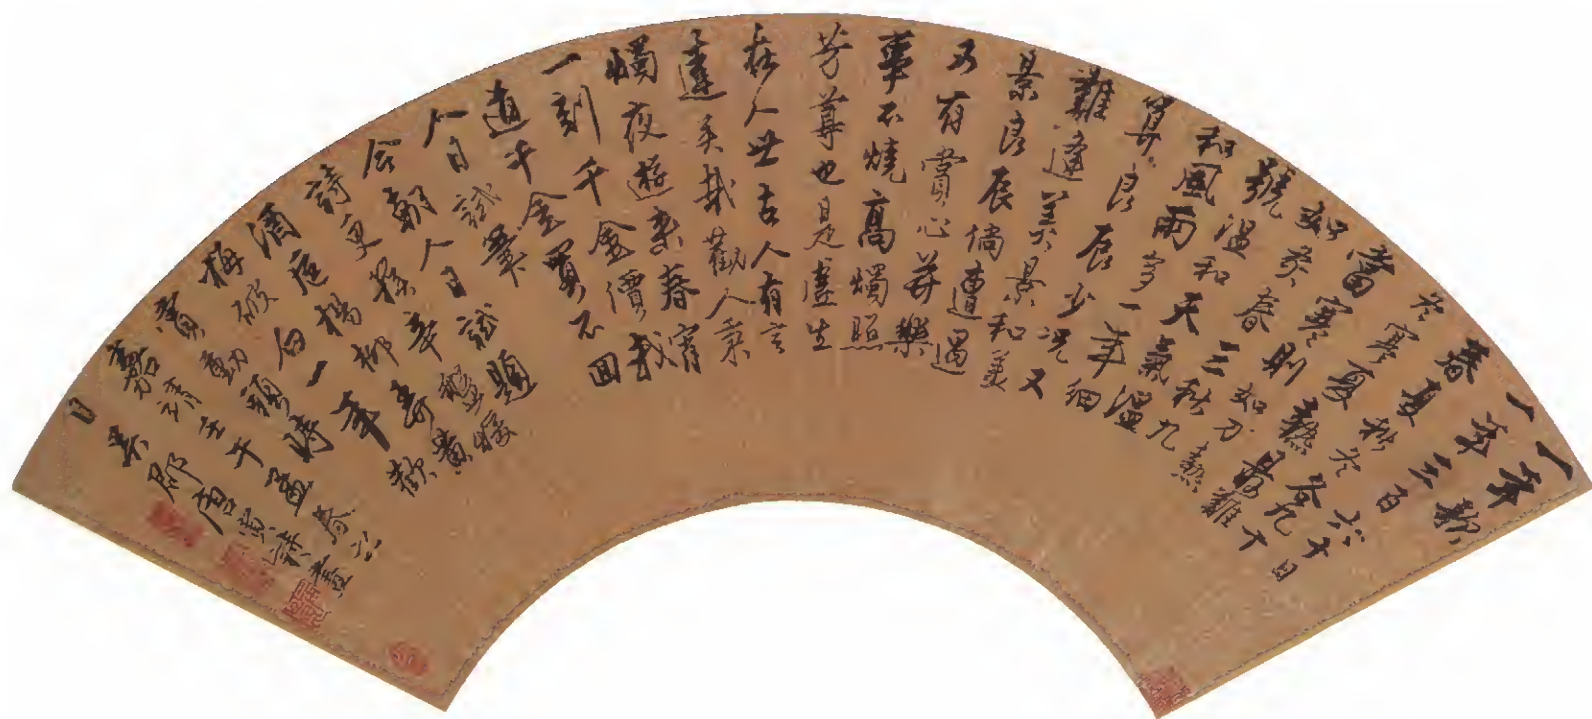 一年歌
一年三百六十日
春夏秋冬各九十
冬寒夏熱最難
當寒則如刀熱
如炙春三秋九
號溫和天氣溫
和風雨多一年細
算良辰少況又
難逢美景和美
景良辰倘遭遇
又有賞心并樂
事不燒高燭照
芳尊也是虛生
在人世古人有言
達矣哉勸人秉
燭夜遊來春宵
一刻千金價我
道千金買不回
人日試筆
今朝人日試題
詩更探辛盤煖
酒卮楊柳弄黃
梅破白一年歡
賞動頭時
嘉靖壬午孟春六
日吳郡唐寅詩畫